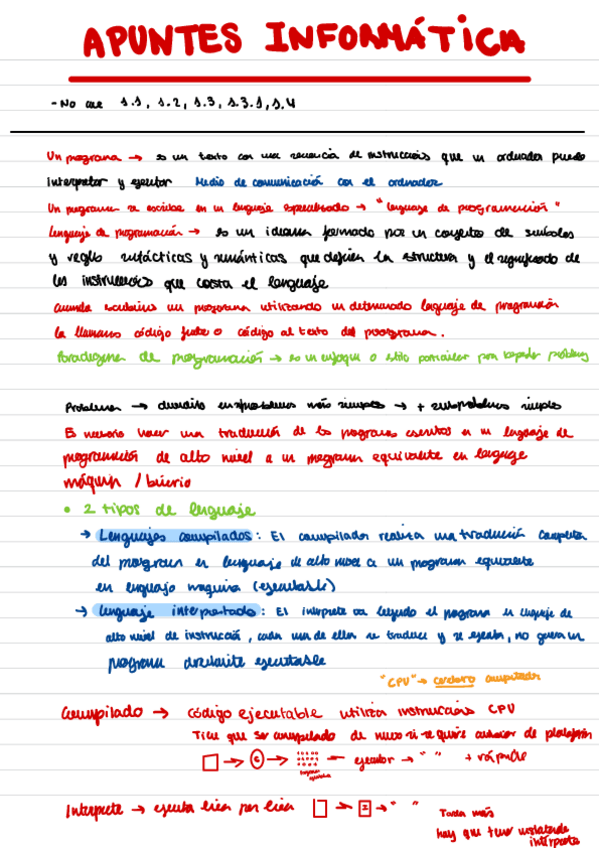 APUNTES INFORMÁTICA
- No cae 1.1, 1.2, 1.3, 1.3.1, 1.4
Un programa → es un texto con una secuencia de instrucciones que un ordenador puede
interpretar y ejecutar Medio de comunicación con el ordenador
Un programa se escribe en un lenguaje especializado → "lenguaje de programación"
lenguaje de programación → es un idioma formado por un conjunto de símbolos
y reglas sintácticas y semánticas que definen la structura y el significado de
las instrucciones que consta el lenguaje
Cuando escribimos un programa utilizando un determinado lenguaje de programación
lo llamamos código fuente o código al texto del programa.
Paradigma de programación → es un enfoque o estilo particular para
Problema → más simples → + subproblemas simples
Es necesario hacer una traducción de los programas escritos en un lenguaje de
programación de alto nivel a un programa equivalente en lenguaje
máquina / binario
• 2 tipos de lenguaje
→ Lenguajes compilados: El compilador realiza una traducción completa
del programa en lenguaje de alto nivel a un programa equivalente
en lenguaje maquina (ejecutable)
→ lenguaje interpretado: El interprete va leyendo el programa en lenguaje de
alto nivel de instrucción, cada una de ellas se traduce y se ejecuta, no genera un
programa ejecutable
"CPU" → cerebro computador
Compilado → código ejecutable utiliza instrucciones CPU
Tiene que ser compilado de nuevo si se quiere cambiar de plataforma
→ C → → " " + rápido
Interprete → ejecuta línea por línea → I → " " Tarda más
hay que tener instalado
intérprete